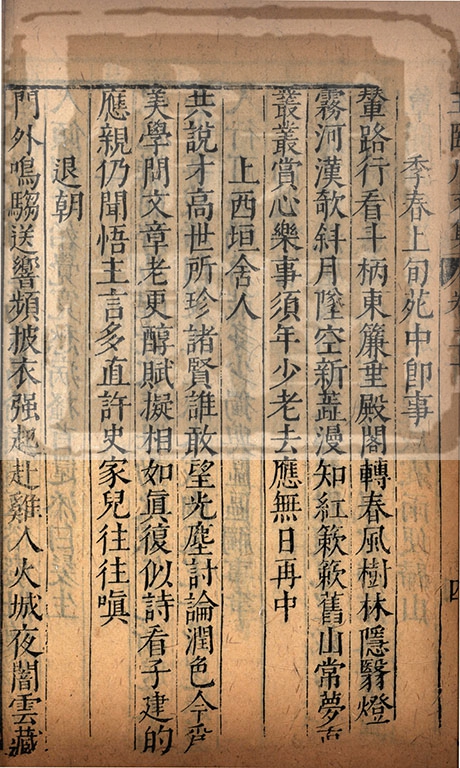 季春上旬苑中即事
輦路行看斗柄東簾垂殿閣轉春風樹林隱翳燈
霧河漢欹斜月墜空新蘂漫知紅簌簌舊山常夢
叢叢賞心樂事須年少老去應無日再中
上西垣舍人
共說才高世所珍諸賢誰敢望光塵討論潤色今
美學問文章老更醇賦擬相如真復似詩看子建的
應親仍聞悟主言多直許史家兒往往嗔
退朝
門外鳴騶送響頻披衣强起赴雞人火城夜闇雲藏